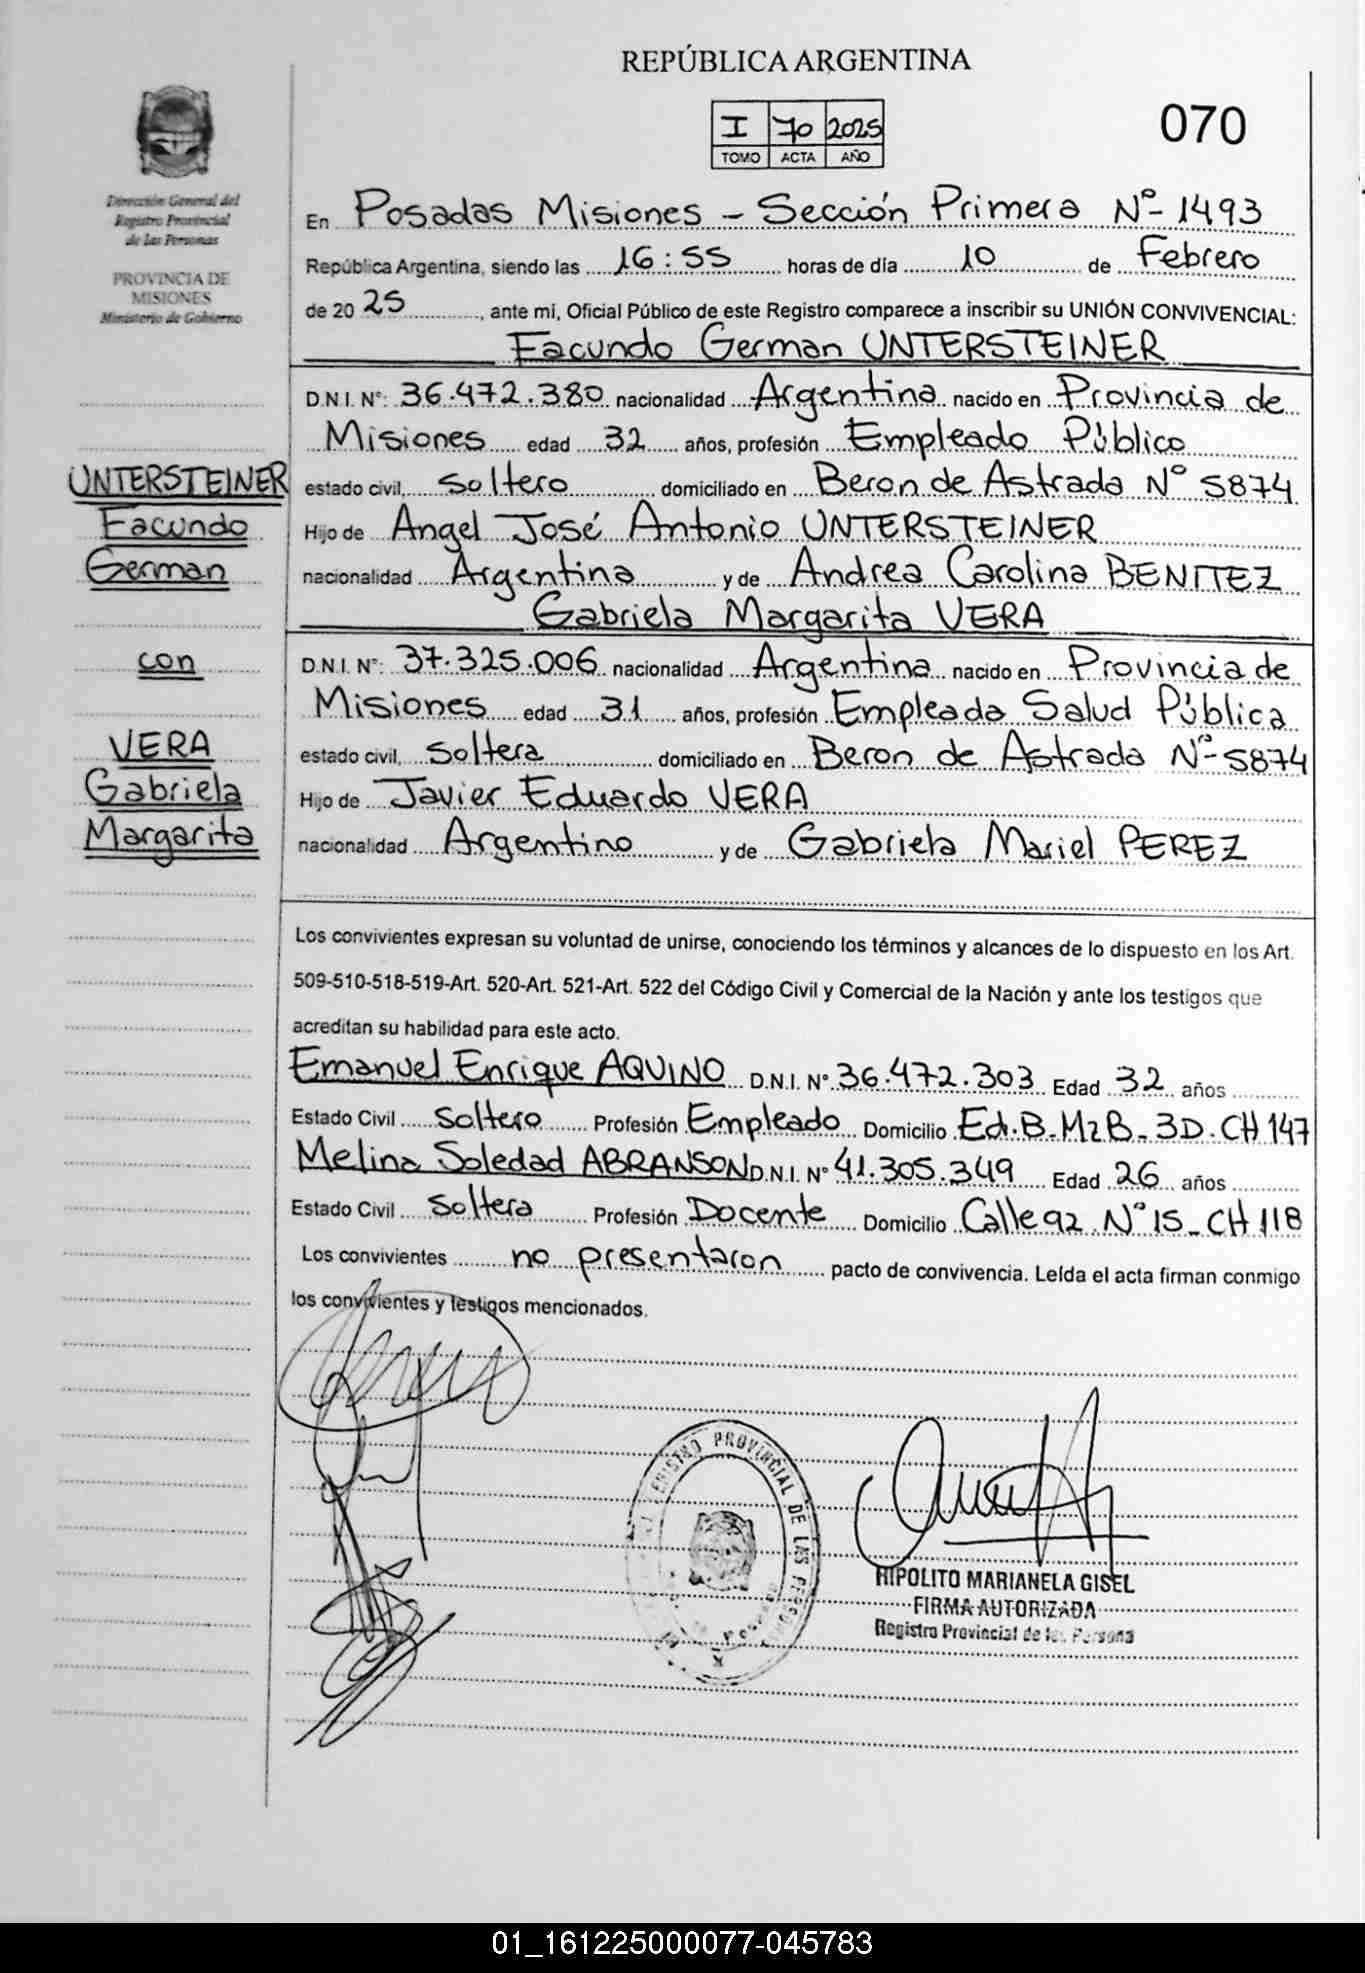 REPÚBLICA ARGENTINA
I 70 2025
TOMO ACTA AÑO
070
Dirección General del
Registro Provincial
de las Personas
PROVINCIA DE
MISIONES
Ministerio de Gobierno
En Posadas Misiones - Sección Primera Nº 1493
República Argentina, siendo las 16:55 horas de día 10 de Febrero
de 2025, ante mi, Oficial Público de este Registro comparece a inscribir su UNIÓN CONVIVENCIAL:
Facundo German UNTERSTEINER
D.N.I. N°: 36.472.380 nacionalidad Argentina nacido en Provincia de
Misiones edad 32 años, profesión Empleado Público
estado civil, Soltero domiciliado en Beron de Astrada N° 5874
Hijo de Angel José Antonio UNTERSTEINER
nacionalidad Argentina y de Andrea Carolina BENITEZ
Gabriela Margarita VERA
D.N.I. N°: 37.325.006 nacionalidad Argentina nacido en Provincia de
Misiones edad 31 años, profesión Empleada Salud Pública
estado civil, Soltera domiciliado en Beron de Astrada Nº 5874
Hijo de Javier Eduardo VERA
nacionalidad Argentino y de Gabriela Mariel PEREZ
UNTERSTEINER
Facundo
German
con
VERA
Gabriela
Margarita
Los convivientes expresan su voluntad de unirse, conociendo los términos y alcances de lo dispuesto en los Art.
509-510-518-519-Art. 520-Art. 521-Art. 522 del Código Civil y Comercial de la Nación y ante los testigos que
acreditan su habilidad para este acto.
Emanuel Enrique AQUINO D.N.I. N° 36.472.303 Edad 32 años
Estado Civil Soltero Profesión Empleado Domicilio Ed.B-MzB-3D.CH 147
Melina Soledad ABRANSON D.N.I. N° 41.305.349 Edad 26 años
Estado Civil Soltera Profesión Docente Domicilio Calle 92 N° 15-CH 118
Los convivientes no presentaron pacto de convivencia. Leída el acta firman conmigo
los convivientes y testigos mencionados.
REGISTRO PROVINCIAL DE LAS PERSONAS
HIPOLITO MARIANELA GISEL
FIRMA AUTORIZADA
Registro Provincial de las Persona
01_161225000077-045783